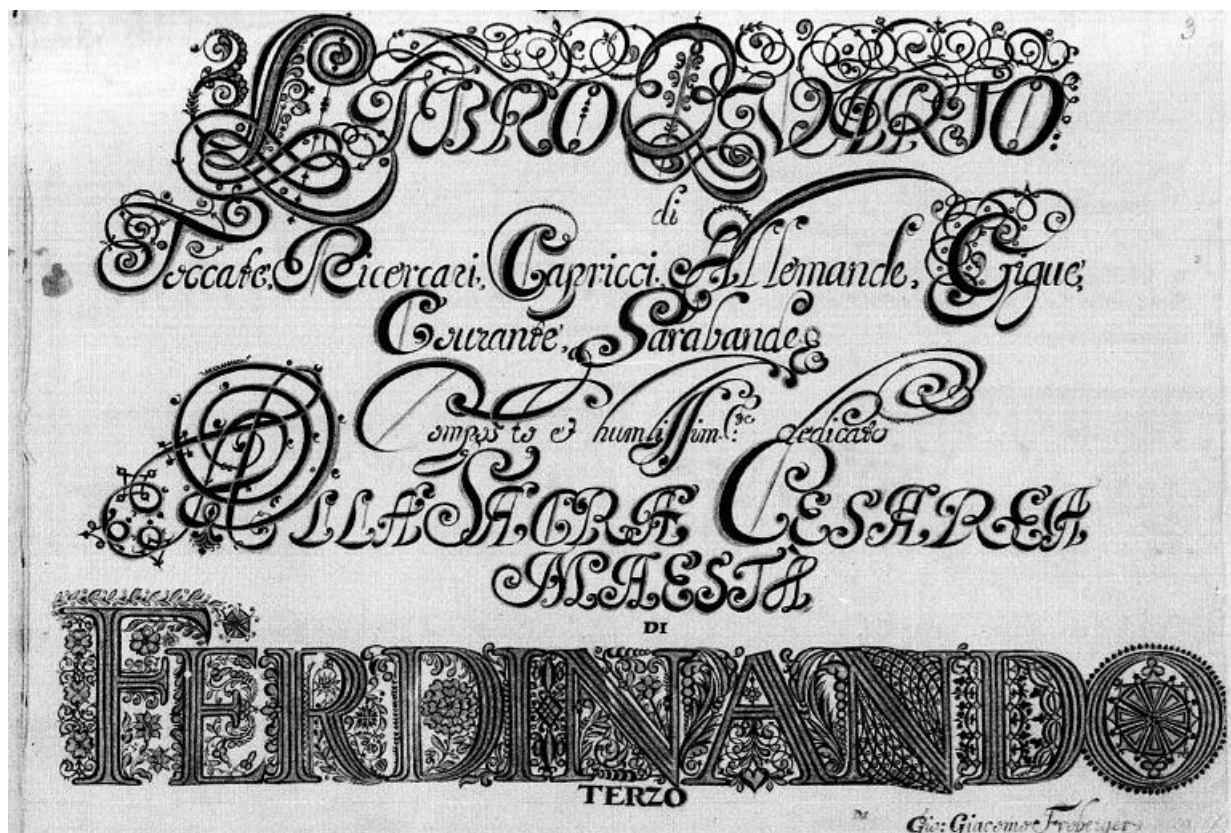 LIBRO QVARTO:
di
Toccate, Ricercari, Capricci, Allemande, Gigue,
Courante, Sarabande
Composto et humilissim.te dedicato
ALLA SACRA CESAREA
MAESTÀ
DI
FERDINANDO
TERZO
Da Gio: Giacomo Froberger